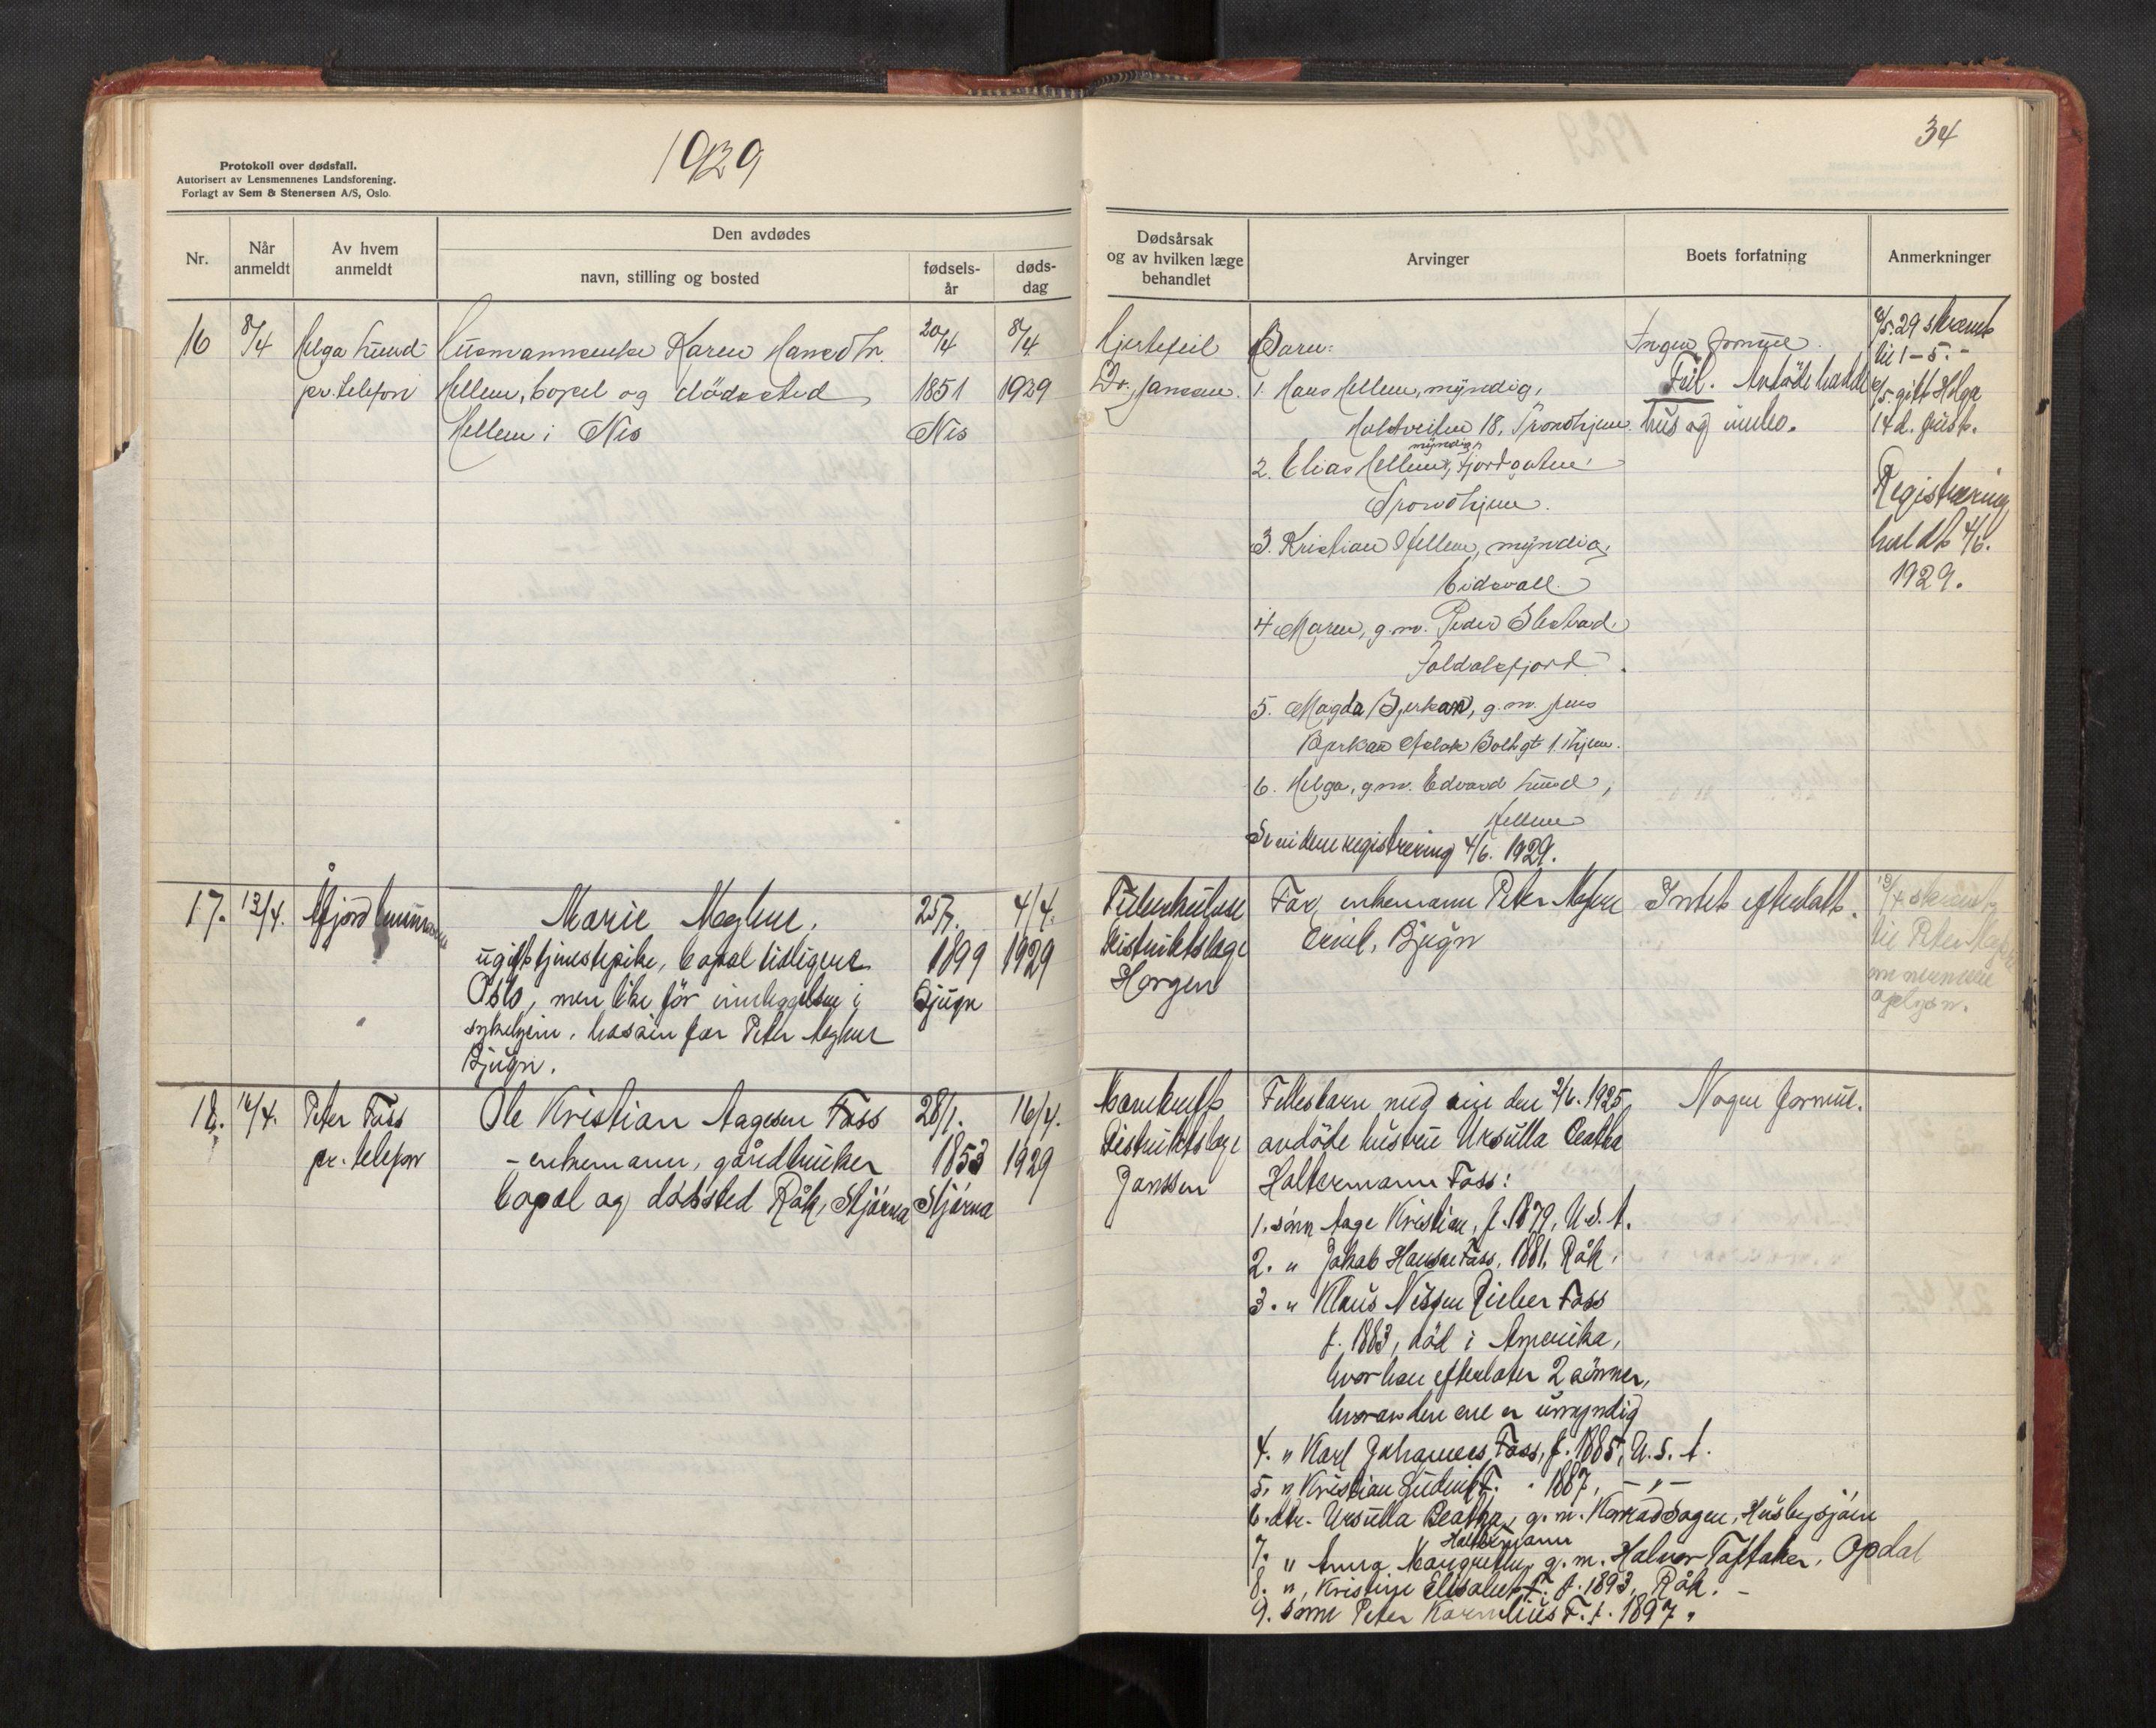 1929
34
Protokoll over dødsfall.
Autorisert av Lensmennenes Landsforening.
Forlagt av Sem & Stenersen A/S, Oslo.
Nr.
Når anmeldt
Av hvem anmeldt
Den avdødes
navn, stilling og bosted
fødsels-år
døds-dag
Dødsårsak og av hvilken læge behandlet
Arvinger
Boets forfatning
Anmerkninger
16 8/4 Helga Lund Husmannsenke Karen Hansdtr. 20/4 8/4
pr. telefon Hellem, bopel og dödssted 1851 1929
Hellem i Nes Nes
Hjertefeil
Dr. Jansen.
Barn:
1. Hans Hellem, myndig,
Holstveiten 18, Trondhjem.
myndig,
2. Elias Hellem, Fjordgaten
Trondhjem.
3. Kristian Hellem, myndig,
Eidsvall
4 Maren, g.m. Peder
5. Magda Bjerkan, g.m. Jens
Bjerkan Aslak Bolts gt 1. Thjem.
6. Helga, g.m. Edvard Lund,
Hellem
registrering 4/6. 1929.
Ingen formue.
Feil. Avdöde hadde
hus og innbo.
/5.29 skrevet
til 1-5.-
/5. gitt Helga
14 d. frist.
Registrering
holdt 4/6.
1929.
17. 13/4. Åfjord kommune Marie 25/7. 4/4.
ugift tjenestepike, bopæl tidligere 1899 1929
Oslo, men like før innleggelsen i Bjugn
sykehjem, hos sin far Peter
Bjugn.
Tuberkulose
Distriktslæge
Horgen
Far, enkemann Peter
Bjugn
Intet efterlatt.
13/4 skrevet
til Peter
om nærmere
oplysn.
18. 16/4. Peter Fass Ole Kristian Aagesen Fass 28/1. 16/4.
pr. telefon - enkemann, gårdbruker 1853 1929
bopæl og dødssted Råk, Stjørna Stjørna
Distriktslæge
Janssen
Fellesbarn med sin den 2/6. 1925
avdöde hustru Ursulla Beatha
Holtermann Fass:
1. sönn Aage Kristian, f. 1879, U.S.A.
2. " Jakob Hansen Fass, 1881, Råk.
3. " Klaus Nissen Fass
f. 1883, död i Amerika,
hvor han efterlater 2 sönner,
hvorav den ene er umyndig
4. " Karl Johannes Fass, f. 1885, U.S.A.
5. " Kristian F. " 1887, -"-
6. dtr. Ursulla Beatha, g.m. Husbysjøen
Holtermann
7. " Anna Margrethe, g.m. Halvor Opdal
8. " Kristine Elisabeth F. f. 1893, Råk. -
9. sönn Peter Kornelius F. f. 1897 "
Nogen formue.